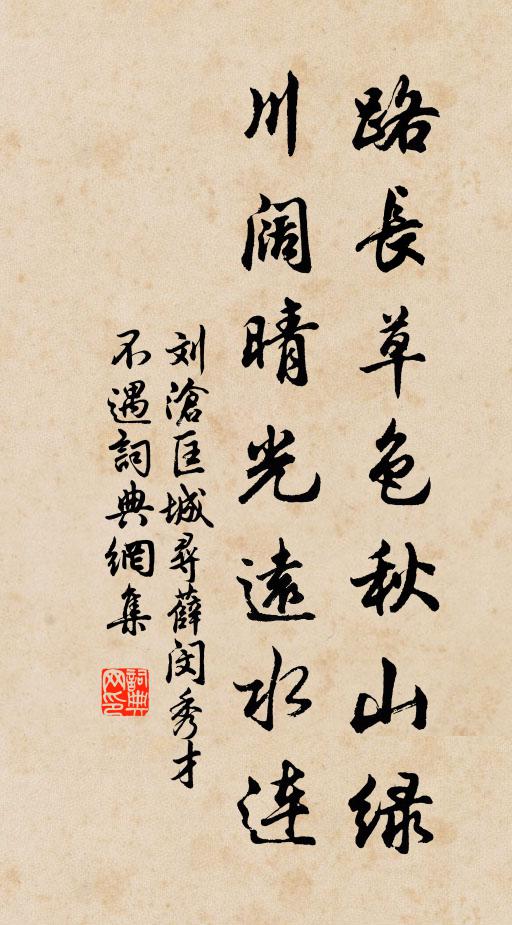 路長草色秋山绿
川阔晴光遠水連
刘滄匡城尋薛閔秀才
不遇詞典網集
詞典网印